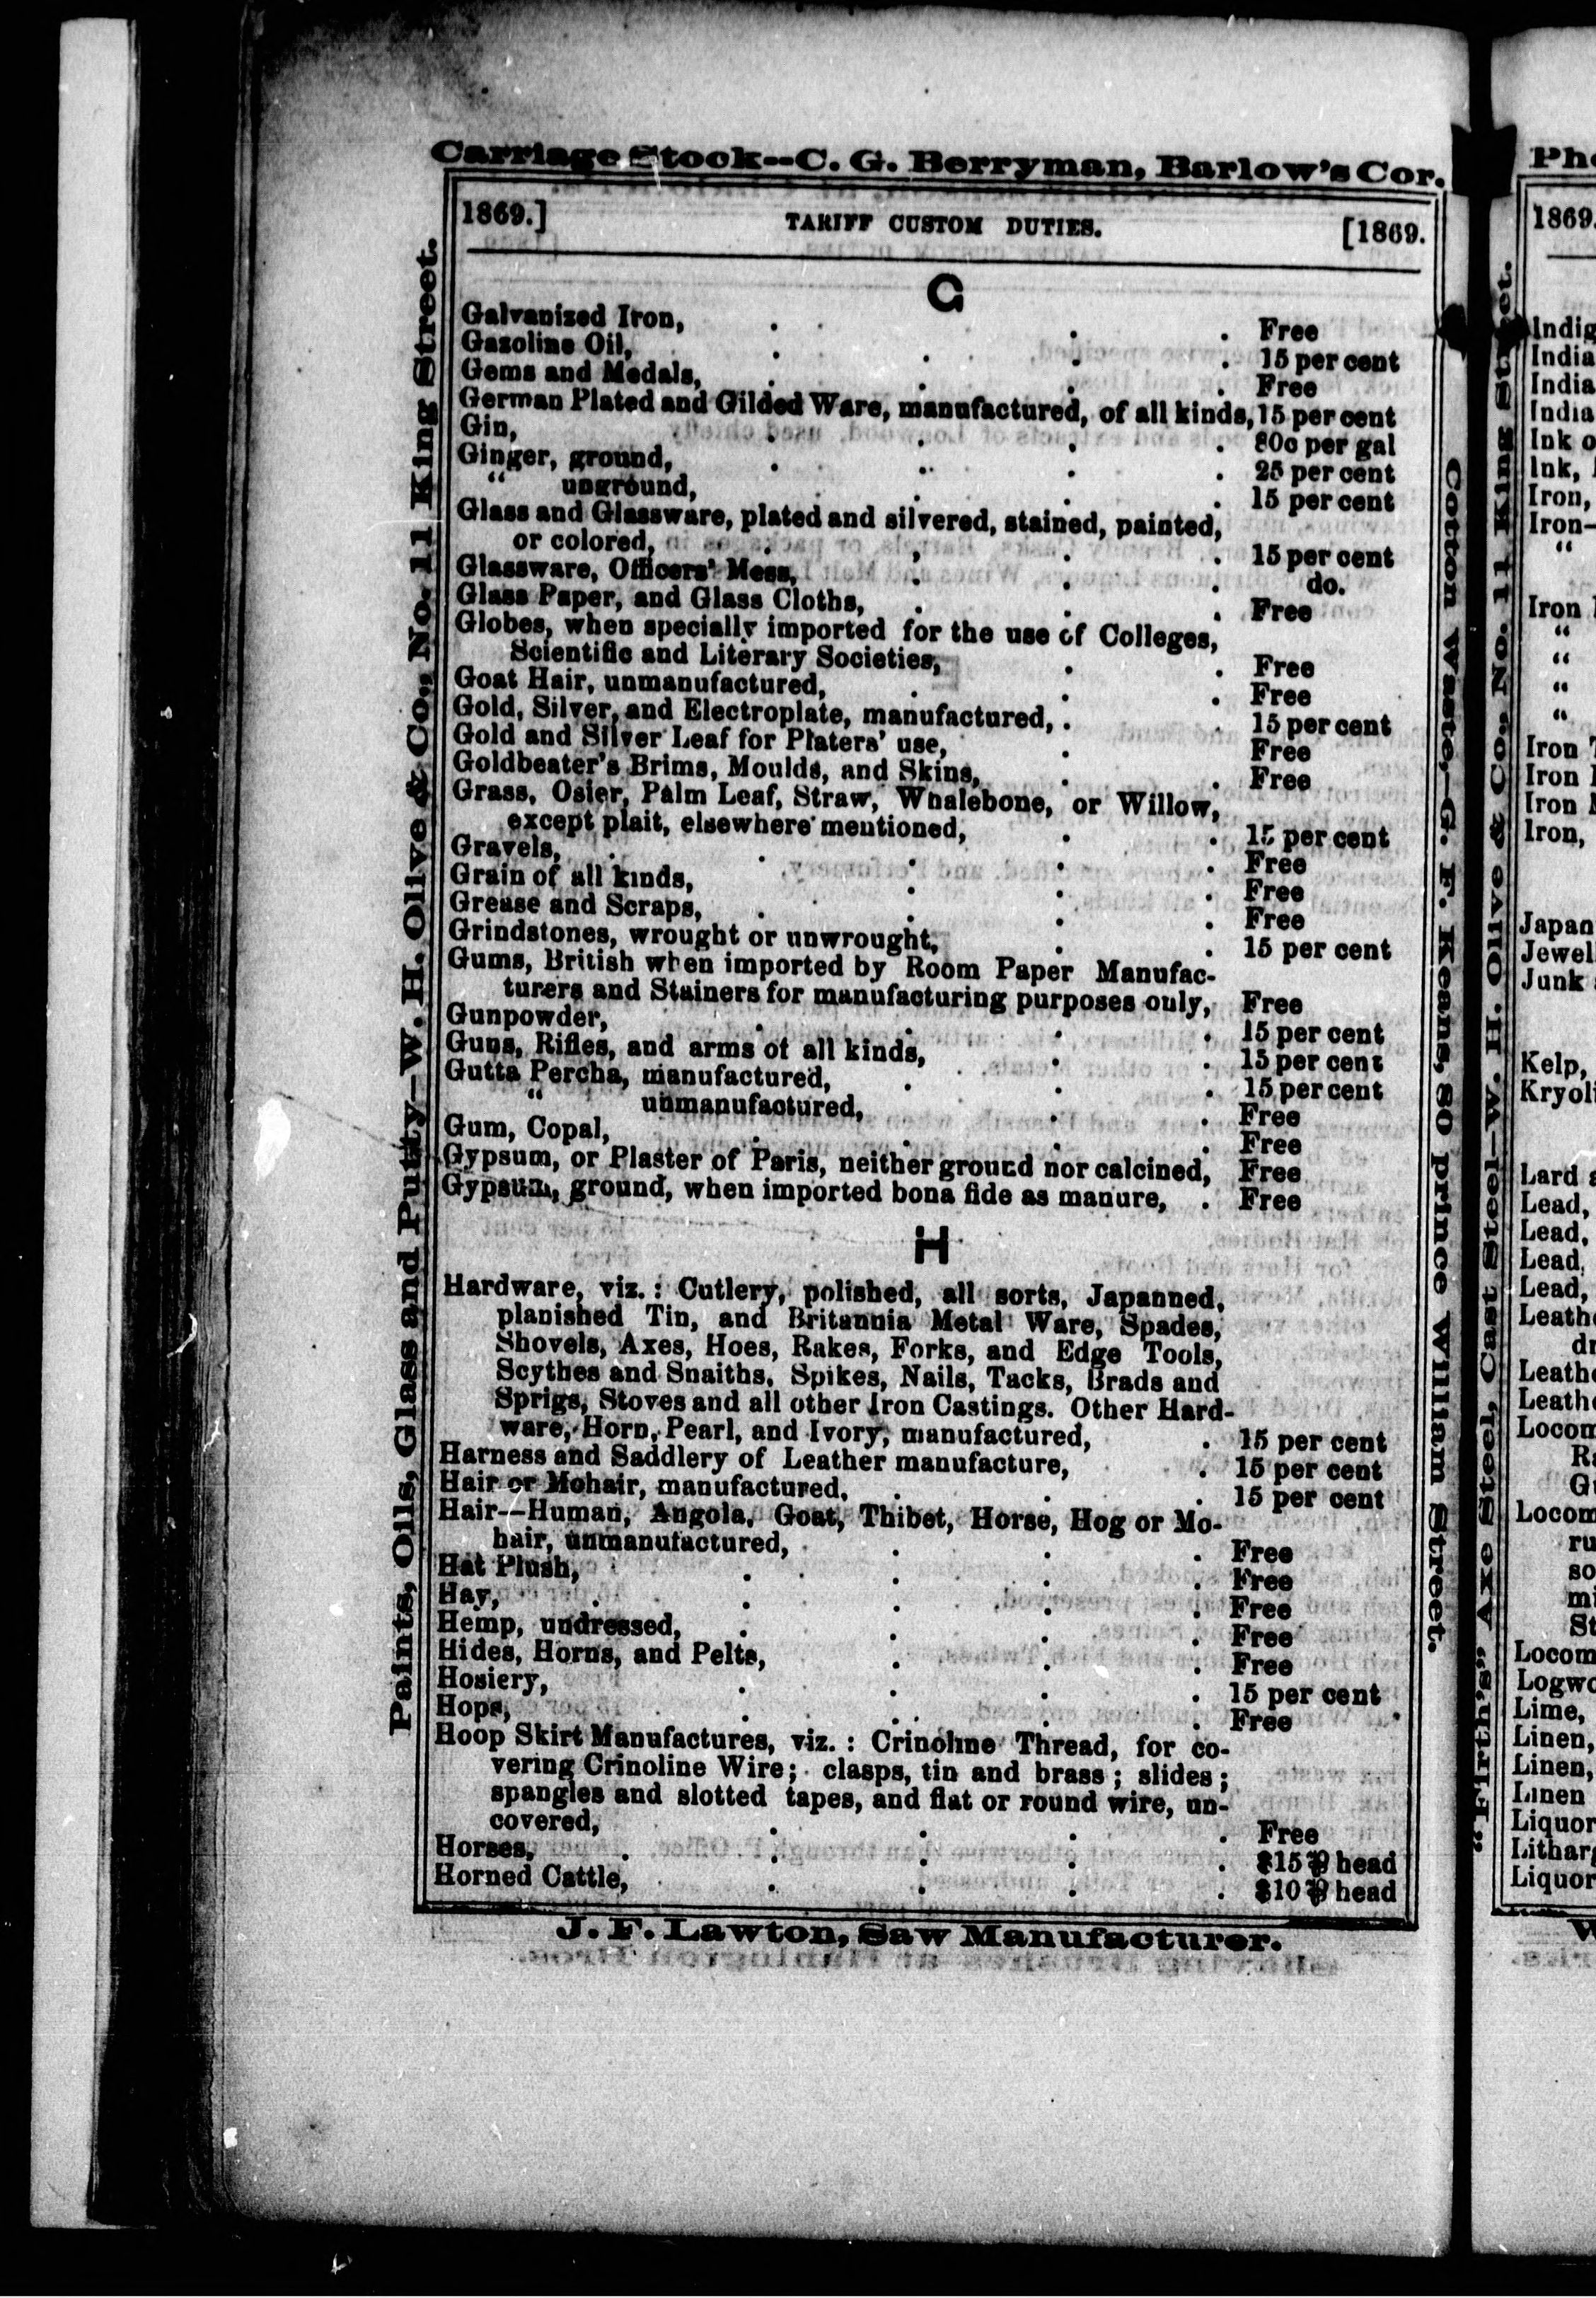 Carriage Stock--C. G. Berryman, Barlow's Cor.
1869.] TARIFF CUSTOM DUTIES. [1869.
G
Galvanized Iron, . . . . Free
Gazoline Oil, . . . . 15 per cent
Gems and Medals, . . . . Free
German Plated and Gilded Ware, manufactured, of all kinds, 15 per cent
Gin, . . . . 80c per gal
Ginger, ground, . . . . 25 per cent
" unground, . . . . 15 per cent
Glass and Glassware, plated and silvered, stained, painted,
or colored, . . . . 15 per cent
Glassware, Officers' Mess, . . . do.
Glass Paper, and Glass Cloths, . . . Free
Globes, when specially imported for the use of Colleges,
Scientific and Literary Societies, . . Free
Goat Hair, unmanufactured, . . . Free
Gold, Silver, and Electroplate, manufactured, . . 15 per cent
Gold and Silver Leaf for Platers' use, . . Free
Goldbeater's Brims, Moulds, and Skins, . . Free
Grass, Osier, Palm Leaf, Straw, Whalebone, or Willow,
except plait, elsewhere mentioned, . . 15 per cent
Gravels, . . . . . Free
Grain of all kinds, . . . Free
Grease and Scraps, . . . . Free
Grindstones, wrought or unwrought, . . 15 per cent
Gums, British when imported by Room Paper Manufac-
turers and Stainers for manufacturing purposes only, Free
Gunpowder, . . . . 15 per cent
Guns, Rifles, and arms of all kinds, . . 15 per cent
Gutta Percha, manufactured, . . . 15 per cent
" unmanufactured, . . Free
Gum, Copal, . . . . Free
Gypsum, or Plaster of Paris, neither ground nor calcined, Free
Gypsum, ground, when imported bona fide as manure, . Free
H
Hardware, viz. : Cutlery, polished, all sorts, Japanned,
planished Tin, and Britannia Metal Ware, Spades,
Shovels, Axes, Hoes, Rakes, Forks, and Edge Tools,
Scythes and Snaiths, Spikes, Nails, Tacks, Brads and
Sprigs, Stoves and all other Iron Castings. Other Hard-
ware, Horn, Pearl, and Ivory, manufactured, . 15 per cent
Harness and Saddlery of Leather manufacture, . 15 per cent
Hair or Mohair, manufactured, . . . 15 per cent
Hair--Human, Angola, Goat, Thibet, Horse, Hog or Mo-
hair, unmanufactured, . . . Free
Hat Plush, . . . . Free
Hay, . . . . . Free
Hemp, undressed, . . . . Free
Hides, Horns, and Pelts, . . . Free
Hosiery, . . . . 15 per cent
Hops, . . . . Free
Hoop Skirt Manufactures, viz. : Crinoline Thread, for co-
vering Crinoline Wire; clasps, tin and brass ; slides ;
spangles and slotted tapes, and flat or round wire, un-
covered, . . . . Free
Horses, . . . . . $15 ⅌ head
Horned Cattle, . . . . $10 ⅌ head
J. F. Lawton, Saw Manufacturer.
Paints, Oils, Glass and Putty--W. H. Olive & Co., No. 11 King Street.
Cotton Waste,--G. F. Keans, 80 prince William Street.
"Firth's" Axe Steel, Cast Steel--W. H. Olive & Co., No. 11 King Street.
1869.
Indig
India
India
India
Ink o
Ink,
Iron,
Iron-
"
Iron
"
"
"
"
Iron
Iron
Iron
Iron,
Japan
Jewel
Junk
Kelp,
Kryoli
Lard
Lead,
Lead,
Lead,
Lead,
Leath
dr
Leath
Leath
Locom
Ra
Locom
ru
so
St
Locom
Logwo
Lime,
Linen,
Linen,
Linen
Liquor
Lithar
Liquor